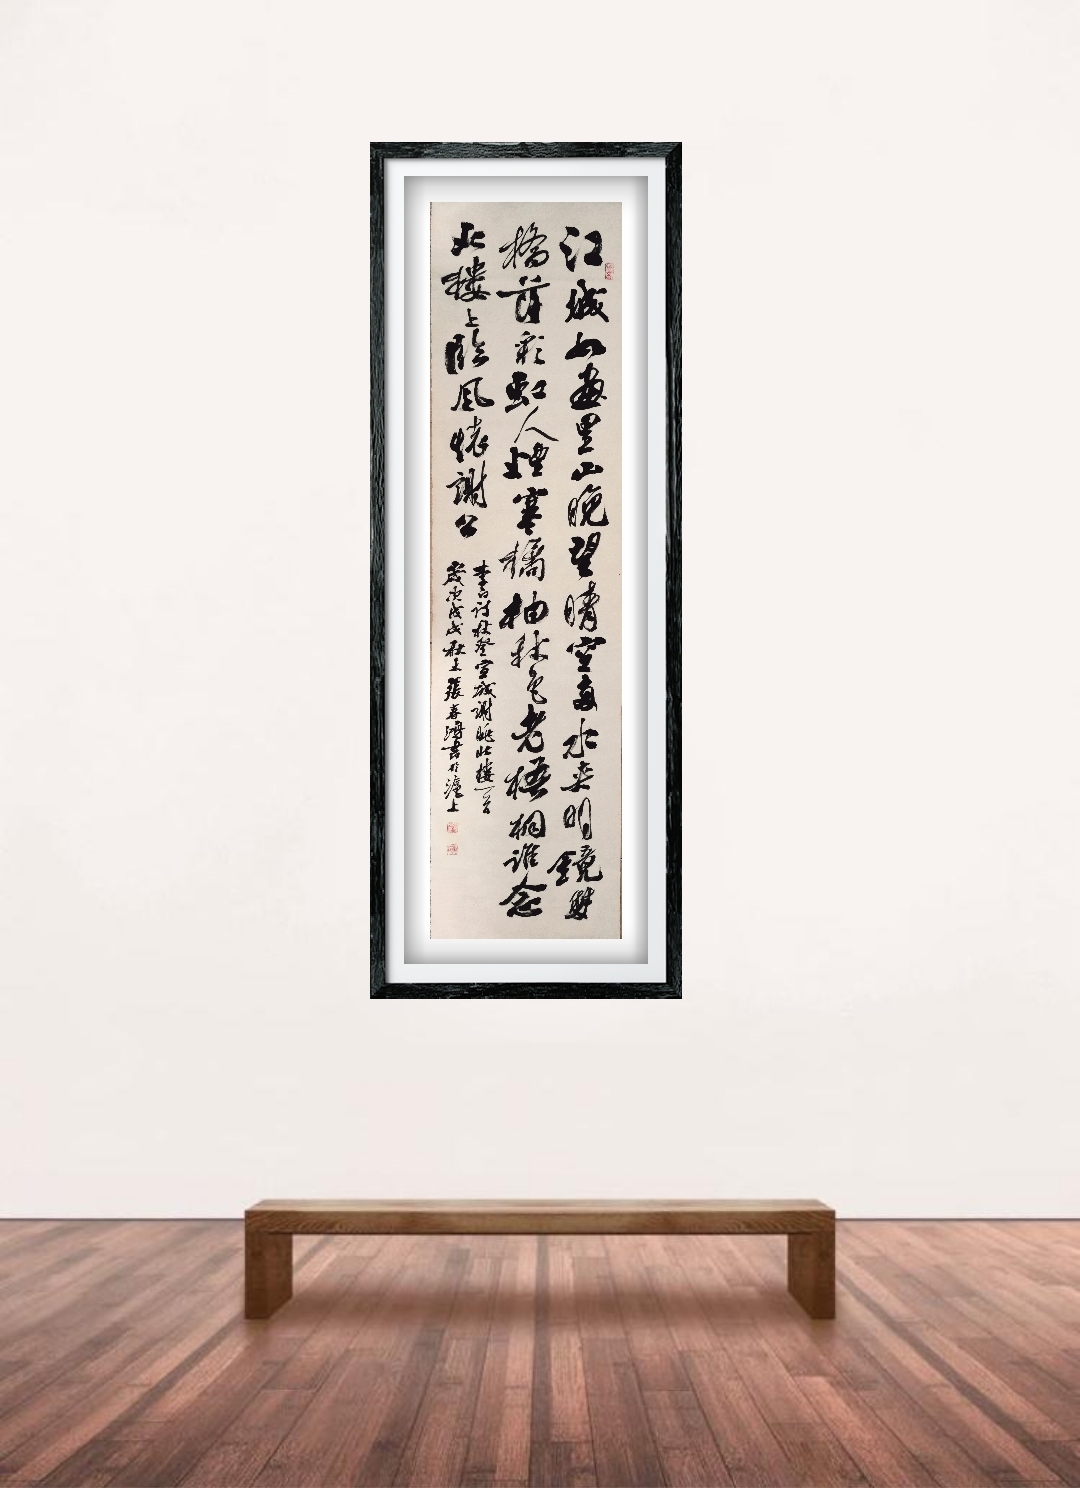 江城如畫里山晚望晴空兩水夾明鏡雙
橋落彩虹人煙寒橘柚秋色老梧桐誰念
北楼上臨風懷謝公
李白詩秋登宣城謝朓北楼一首
歲次戊戌秋張春書於滬上